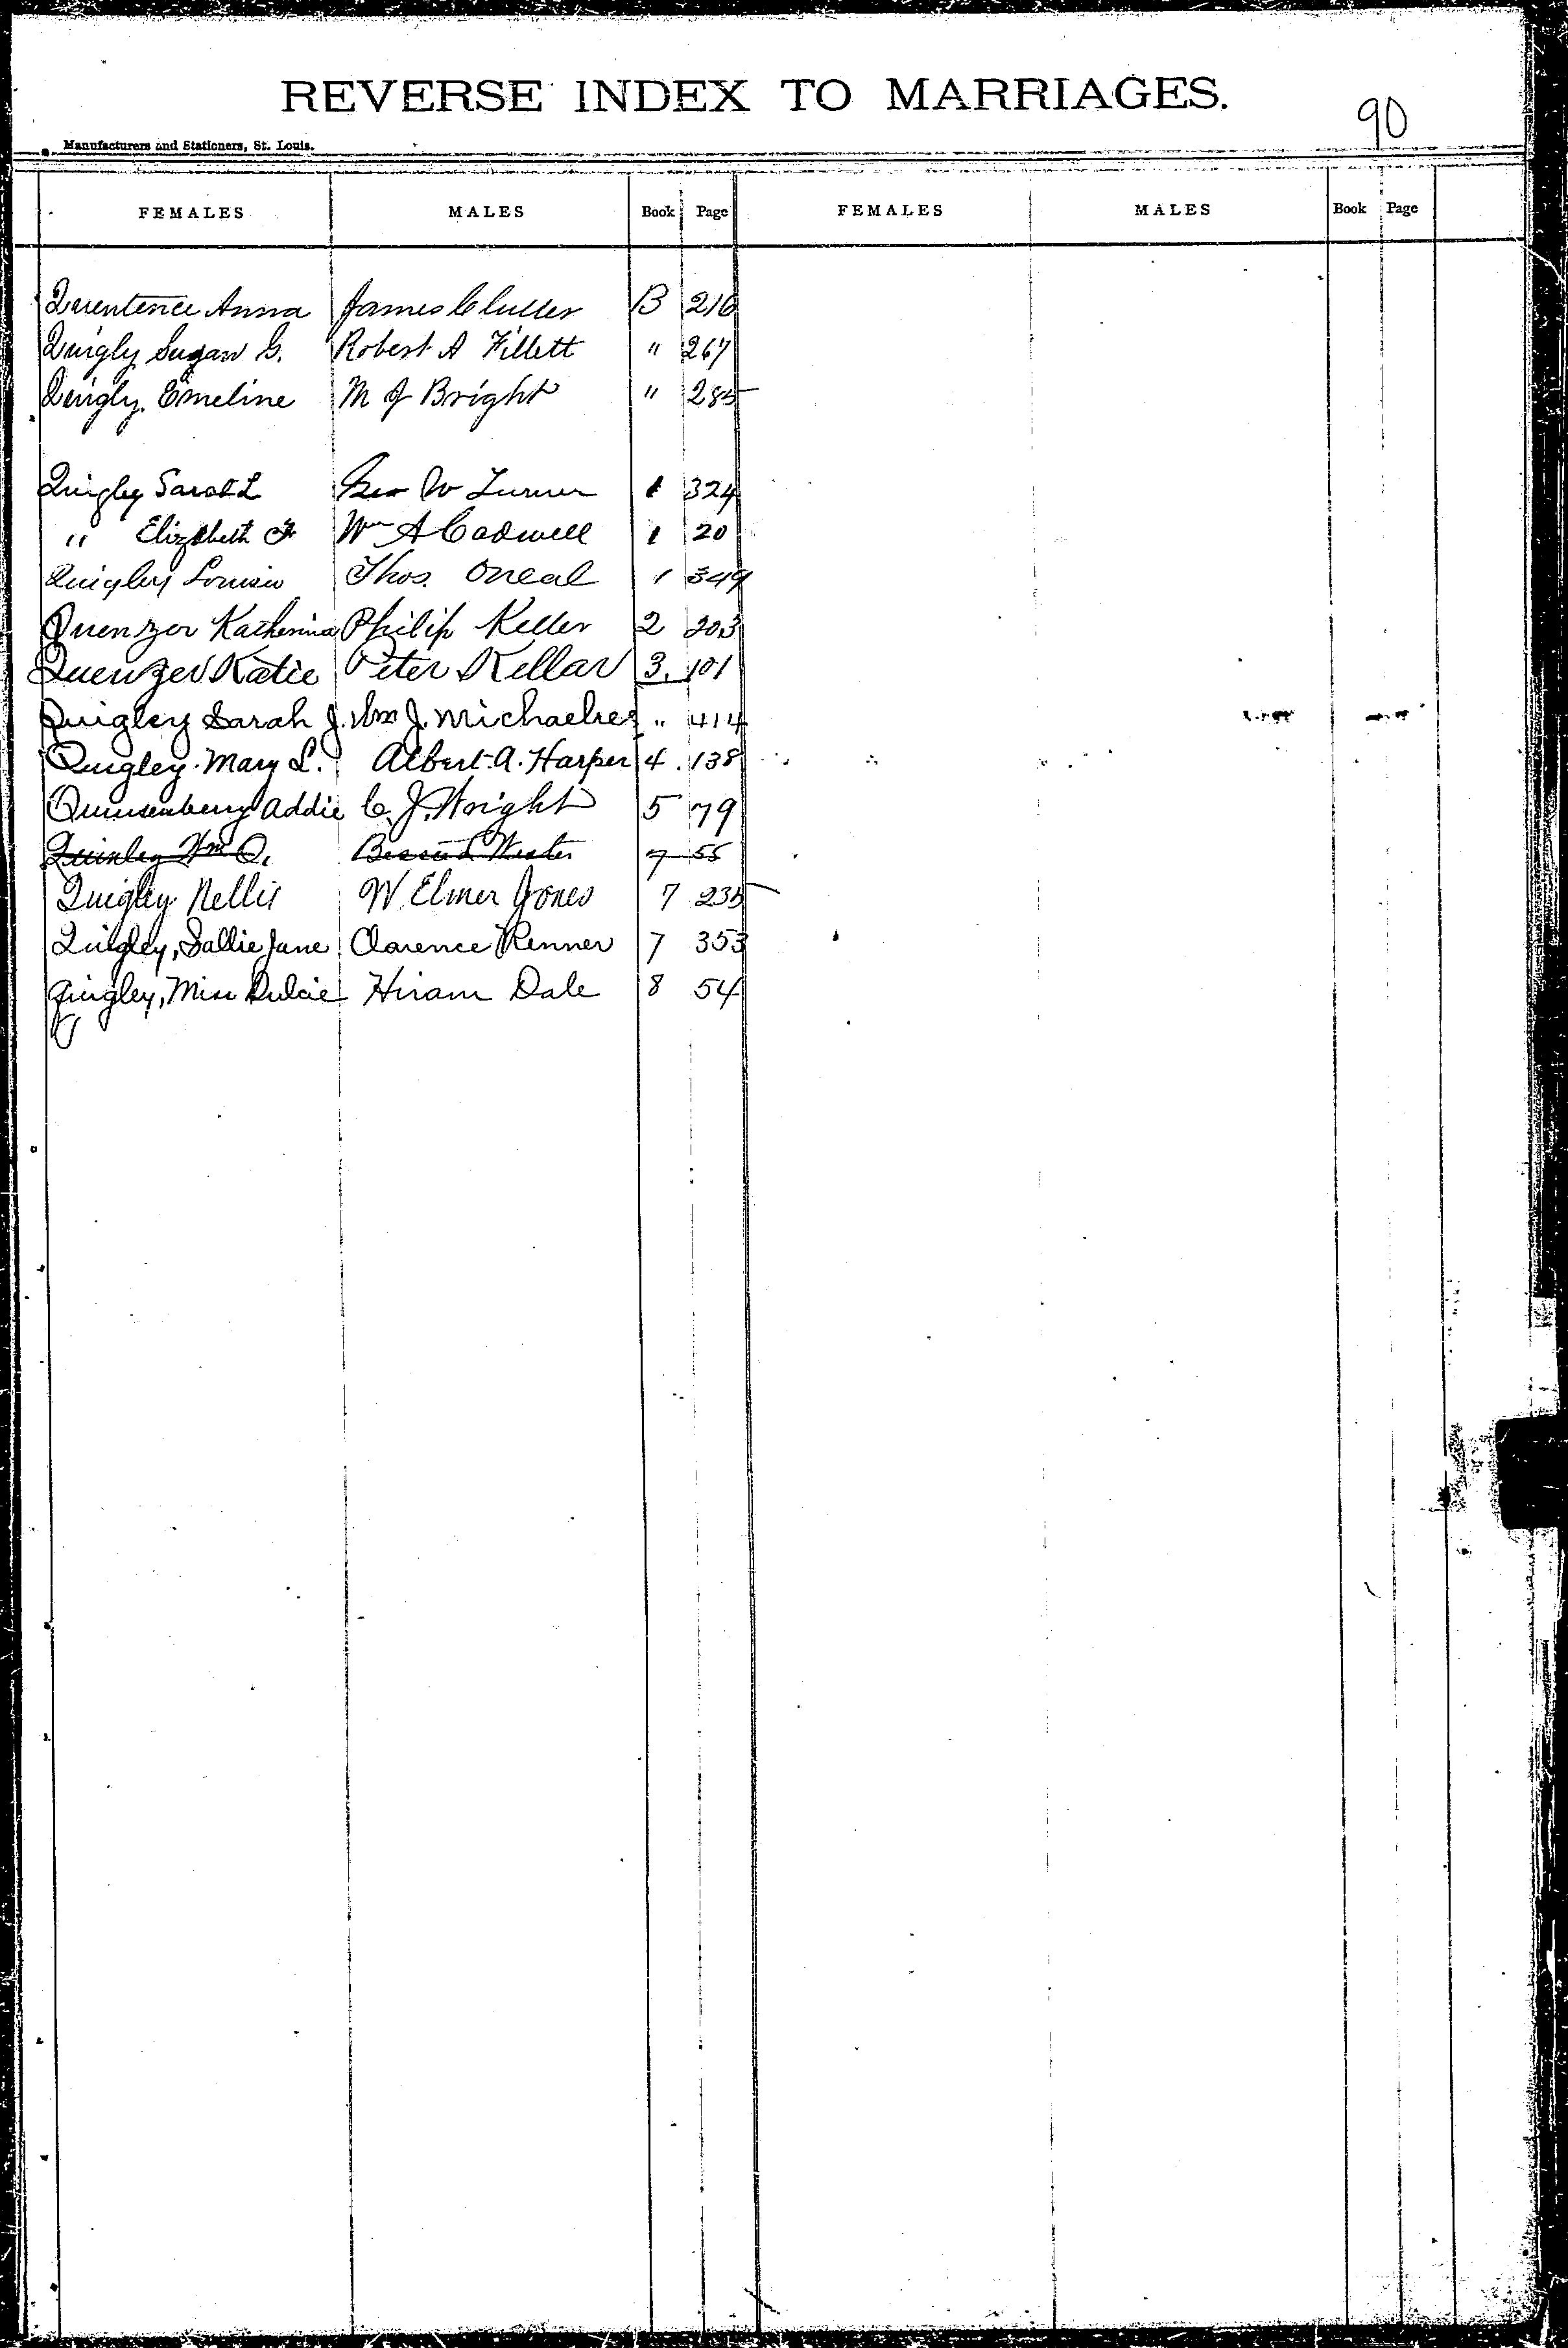 REVERSE INDEX TO MARRIAGES.
90
Manufacturers and Stationers, St. Louis.
FEMALES MALES Book Page FEMALES MALES Book Page
Anna James B 216
Quigly Susan G. Robert A Fillett " 267
Quigly Emeline M J Bright " 285
Quigley Sarah L Geo W Turner 1 324
" Elizabeth F Wm A Cadwell 1 20
Quigley Louisa Thos. Oneal 1 349
Quenzer Katherina Philip Keller 2 203
Quenzer Katie Peter Kellar 3 101
Quigley Sarah J. Wm J. Michaelree " 414
Quigley Mary L. Albert A. Harper 4 138
Addie C. J. Wright 5 79
Quinley Wm O. 7 55
Quigley Nellie W Elmer Jones 7 235
Quigley, Sallie Jane Clarence Renner 7 353
Quigley, Miss Dulcie Hiram Dale 8 54